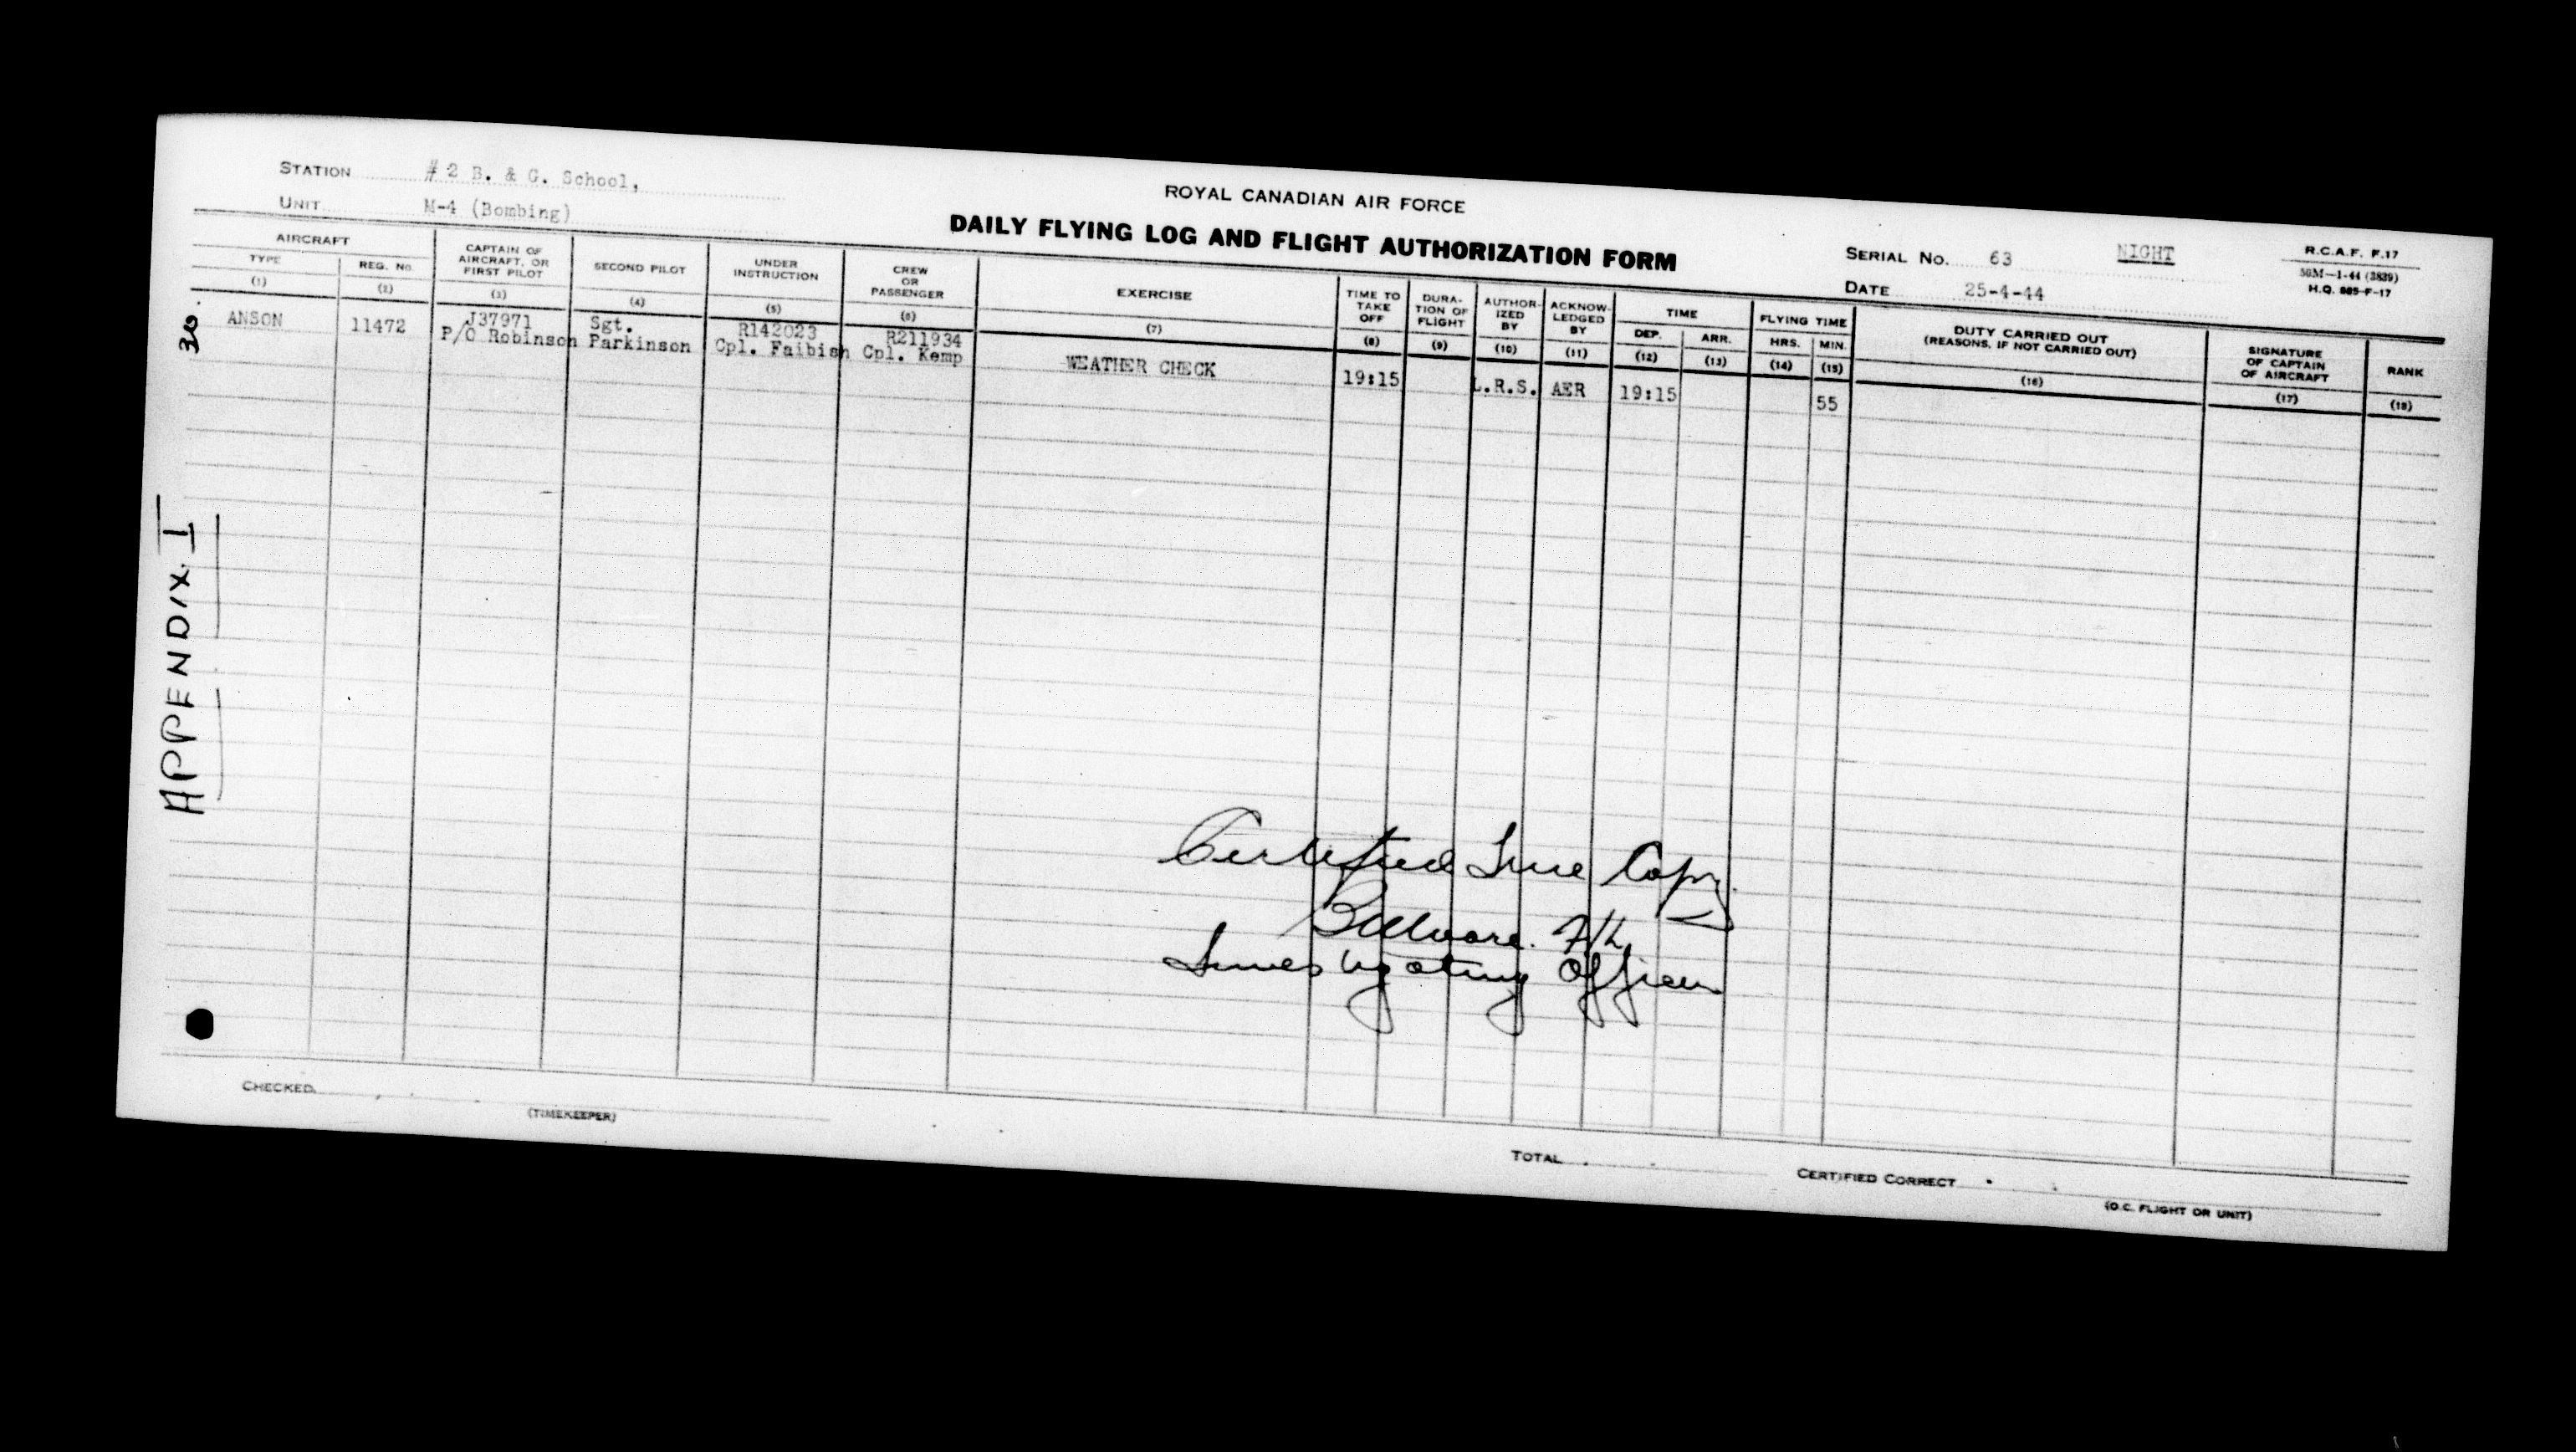 STATION # 2 B. & G. School,
UNIT M-4 (Bombing)
ROYAL CANADIAN AIR FORCE
DAILY FLYING LOG AND FLIGHT AUTHORIZATION FORM
SERIAL NO. 63 NIGHT
DATE 25-4-44
R.C.A.F. F.17
50M—1-44 (3839)
H.Q. 885-F-17
AIRCRAFT
TYPE
(1)
REG. NO.
(2)
CAPTAIN OF
AIRCRAFT, OR
FIRST PILOT
(3)
SECOND PILOT
(4)
UNDER
INSTRUCTION
(5)
CREW
OR
PASSENGER
(6)
EXERCISE
(7)
TIME TO
TAKE
OFF
(8)
DURA-
TION OF
FLIGHT
(9)
AUTHOR-
IZED
BY
(10)
ACKNOW-
LEDGED
BY
(11)
TIME
DEP.
(12)
ARR.
(13)
FLYING TIME
HRS.
(14)
MIN.
(15)
DUTY CARRIED OUT
(REASONS, IF NOT CARRIED OUT)
(16)
SIGNATURE
OF CAPTAIN
OF AIRCRAFT
(17)
RANK
(18)
ANSON
11472
J37971
P/O Robinson
Sgt.
Parkinson
R142023
Cpl. Faibish
R211934
Cpl. Kemp
WEATHER CHECK
19:15
L.R.S.
AER
19:15
55
APPENDIX I
Certified True Copy
F/L
Investigating Officer
CHECKED
(TIMEKEEPER)
TOTAL
CERTIFIED CORRECT
(O.C. FLIGHT OR UNIT)